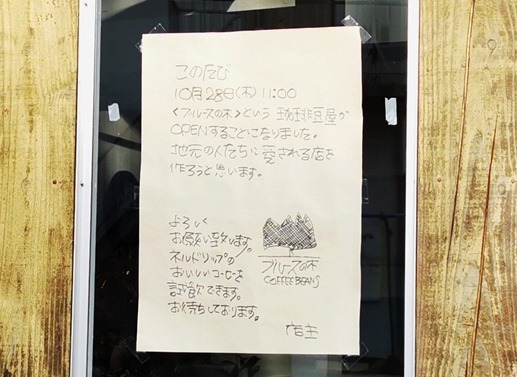 このたび
10月28日(木) 11:00
〈ブルースの木〉という 珈琲豆屋が
OPENすることになりました。
地元の人たちに愛される店を
作ろうと思います。
よろしく
お願い致します。
ネルドリップの
おいしいコーヒーを
試飲できます。
お待ちしております。
ブルースの木
COFFEE BEANS
店主